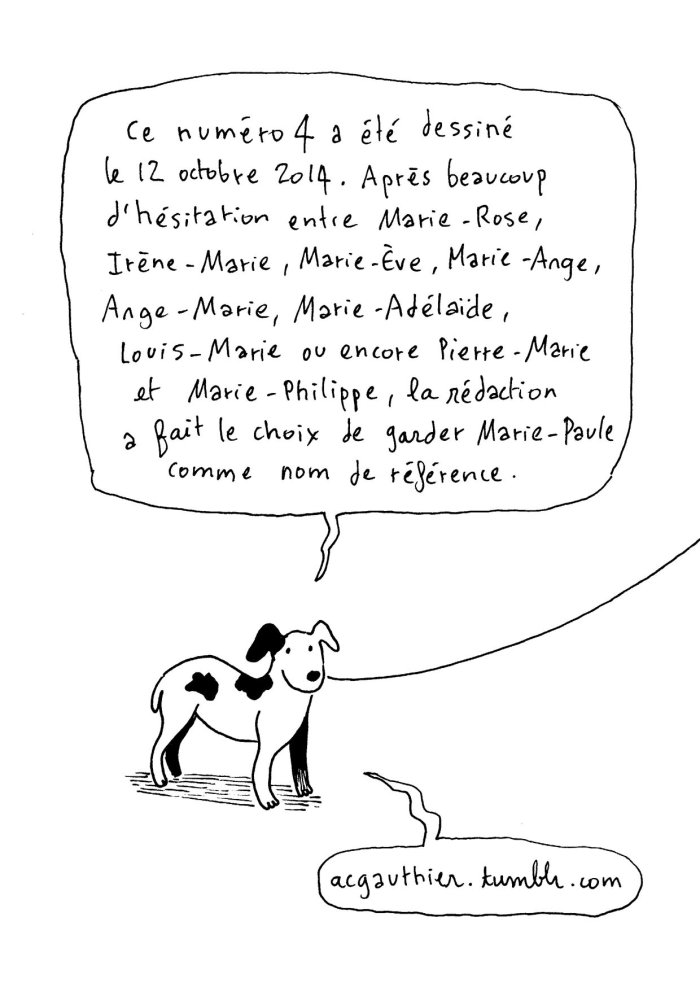 Ce numéro 4 a été dessiné
le 12 octobre 2014. Après beaucoup
d'hésitation entre Marie-Rose,
Irène-Marie, Marie-Ève, Marie-Ange,
Ange-Marie, Marie-Adélaïde,
Louis-Marie ou encore Pierre-Marie
et Marie-Philippe, la rédaction
a fait le choix de garder Marie-Paule
comme nom de référence.
acgauthier.tumblr.com